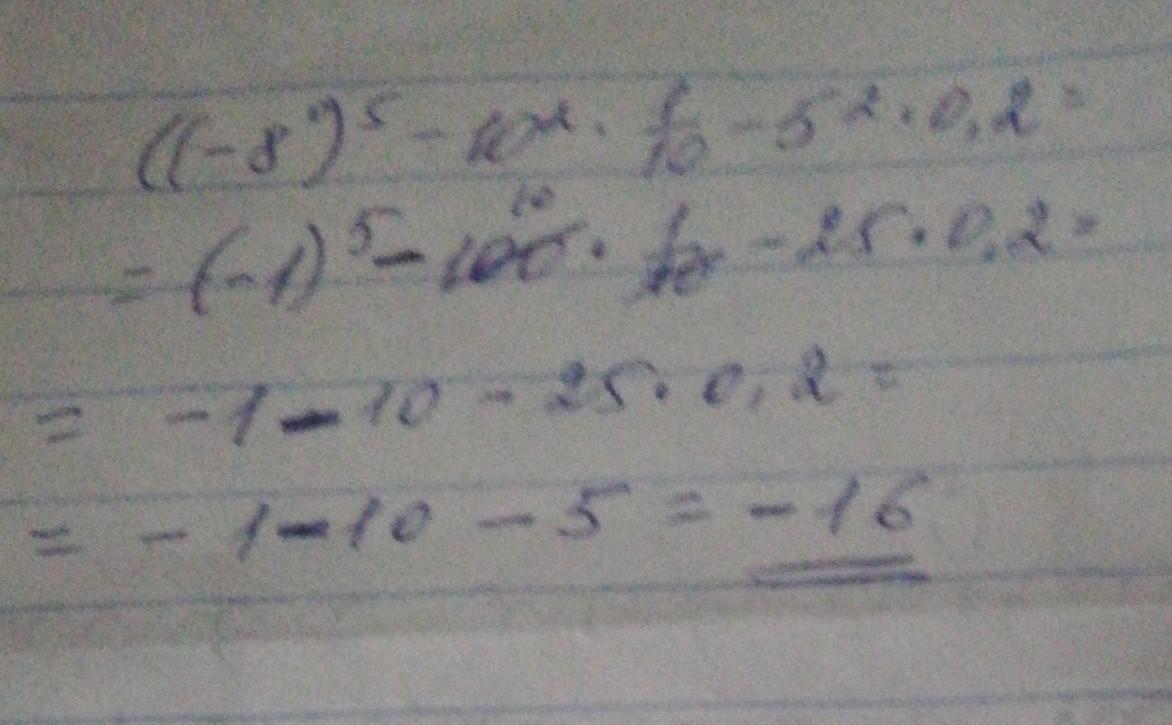 ((-8⁰)⁵ - 10² · 1/10 - 5² · 0,2 =
= (-1)⁵ - 100 · 1/10 - 25 · 0,2 =
10
= -1 - 10 - 25 · 0,2 =
= -1 - 10 - 5 = -16